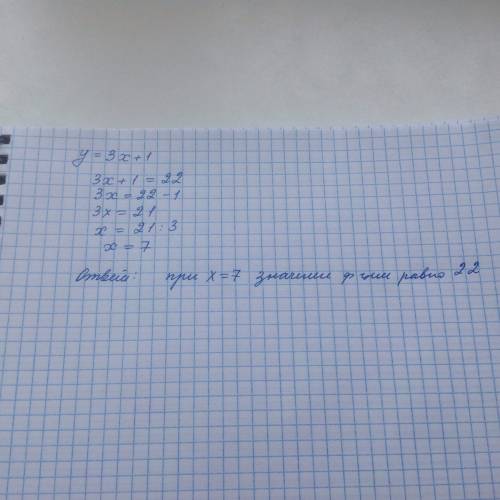 y = 3x+1
3x+1 = 22
3x = 22-1
3x = 21
x = 21:3
x = 7
Ответ: при x=7 значении ф-ции равно 22